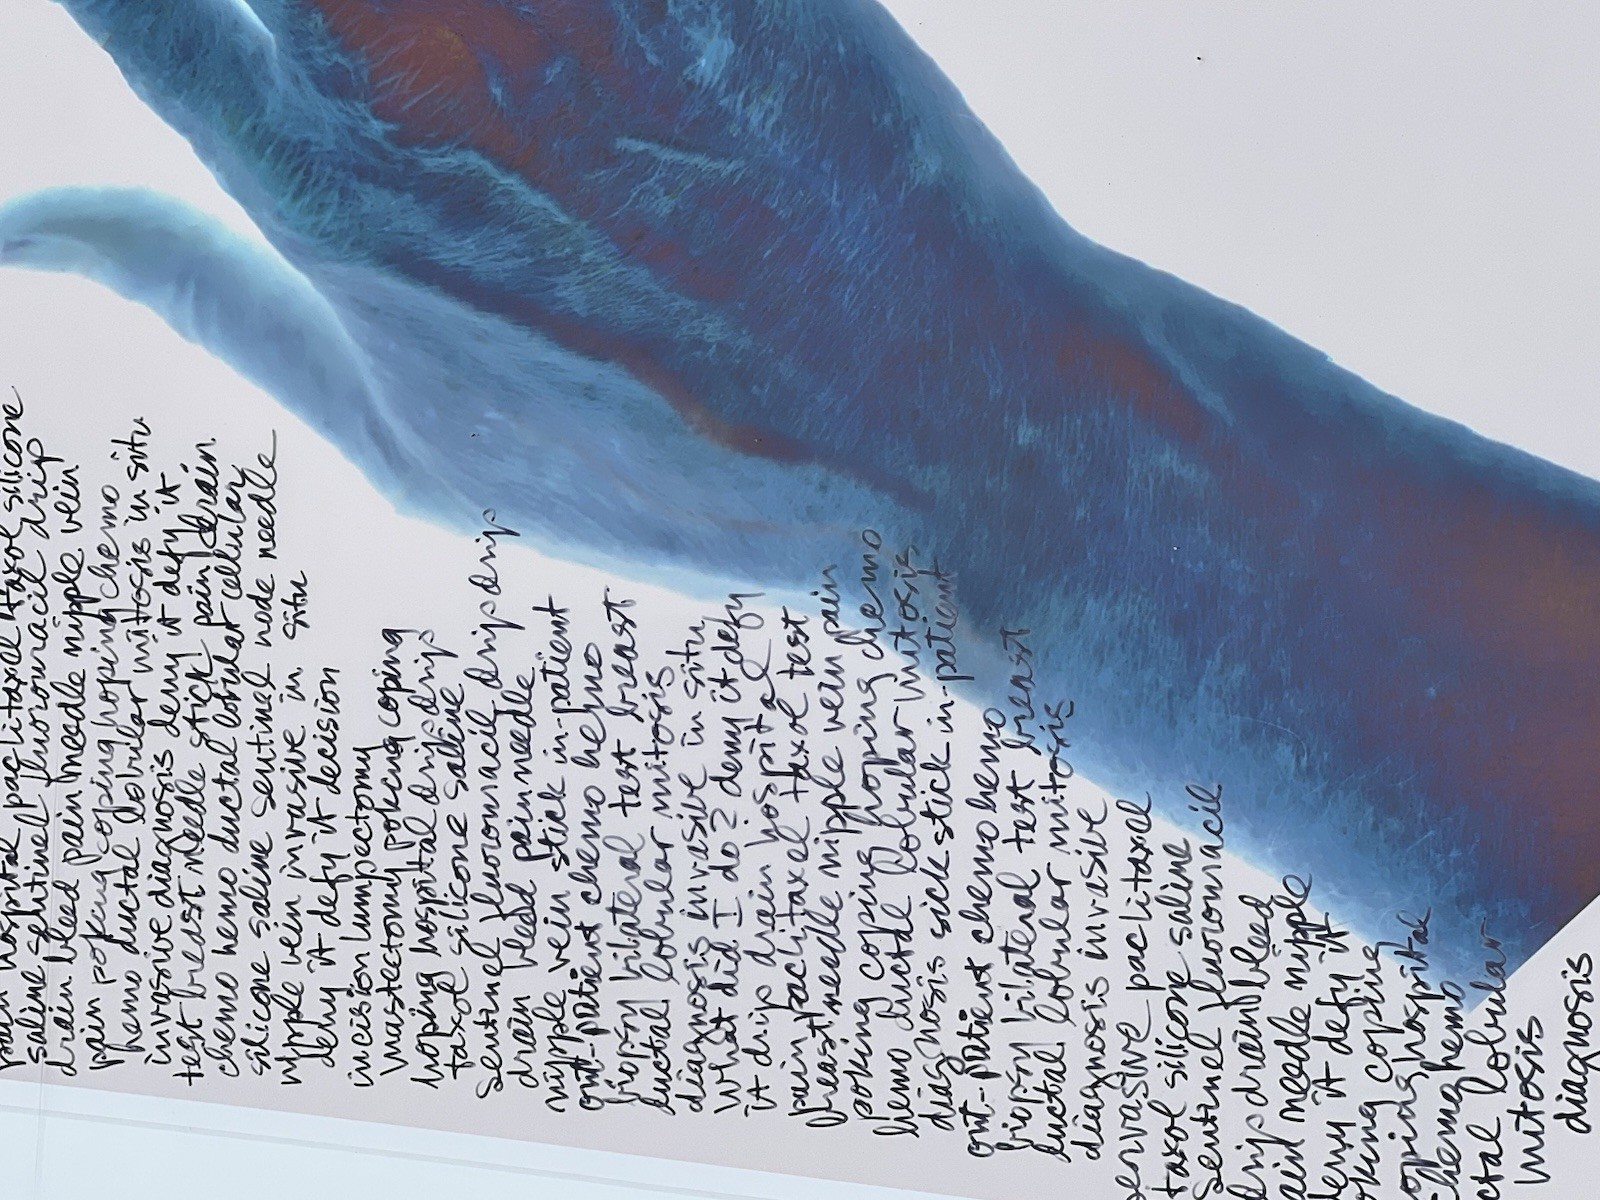 pain hospital paclitaxel taxol silicone
saline sentinel fluorouracil drip
drain bleed pain needle nipple vein
pain poking coping hoping chemo
hemo ductal lobular mitosis in situ
invasive diagnosis deny it defy it
test breast needle stick pain drain
chemo hemo ductal lobular cellular
silicone saline sentinel node needle
nipple vein invasive in situ
deny it defy it decision
incision lumpectomy
mastectomy poking coping
hoping hospital drip drip
taxol silicone saline
sentinel fluorouracil drip drip
drain bleed pain needle
nipple vein stick in-patient
out-patient chemo hemo
biopsy bilateral test breast
ductal lobular mitosis
diagnosis invasive in situ
What did I do? deny it defy
it drip drain hospital
pain paclitaxel taxol test
breast needle nipple vein pain
poking coping hoping chemo
hemo ductal lobular mitosis
diagnosis sick stick in-patient
out-patient chemo hemo
biopsy bilateral test breast
ductal lobular mitosis
diagnosis invasive
pervasive paclitaxel
taxol silicone saline
sentinel fluorouracil
drip drain bleed
pain needle nipple
deny it defy it
poking coping
hoping hospital
chemo hemo
ductal lobular
mitosis
diagnosis